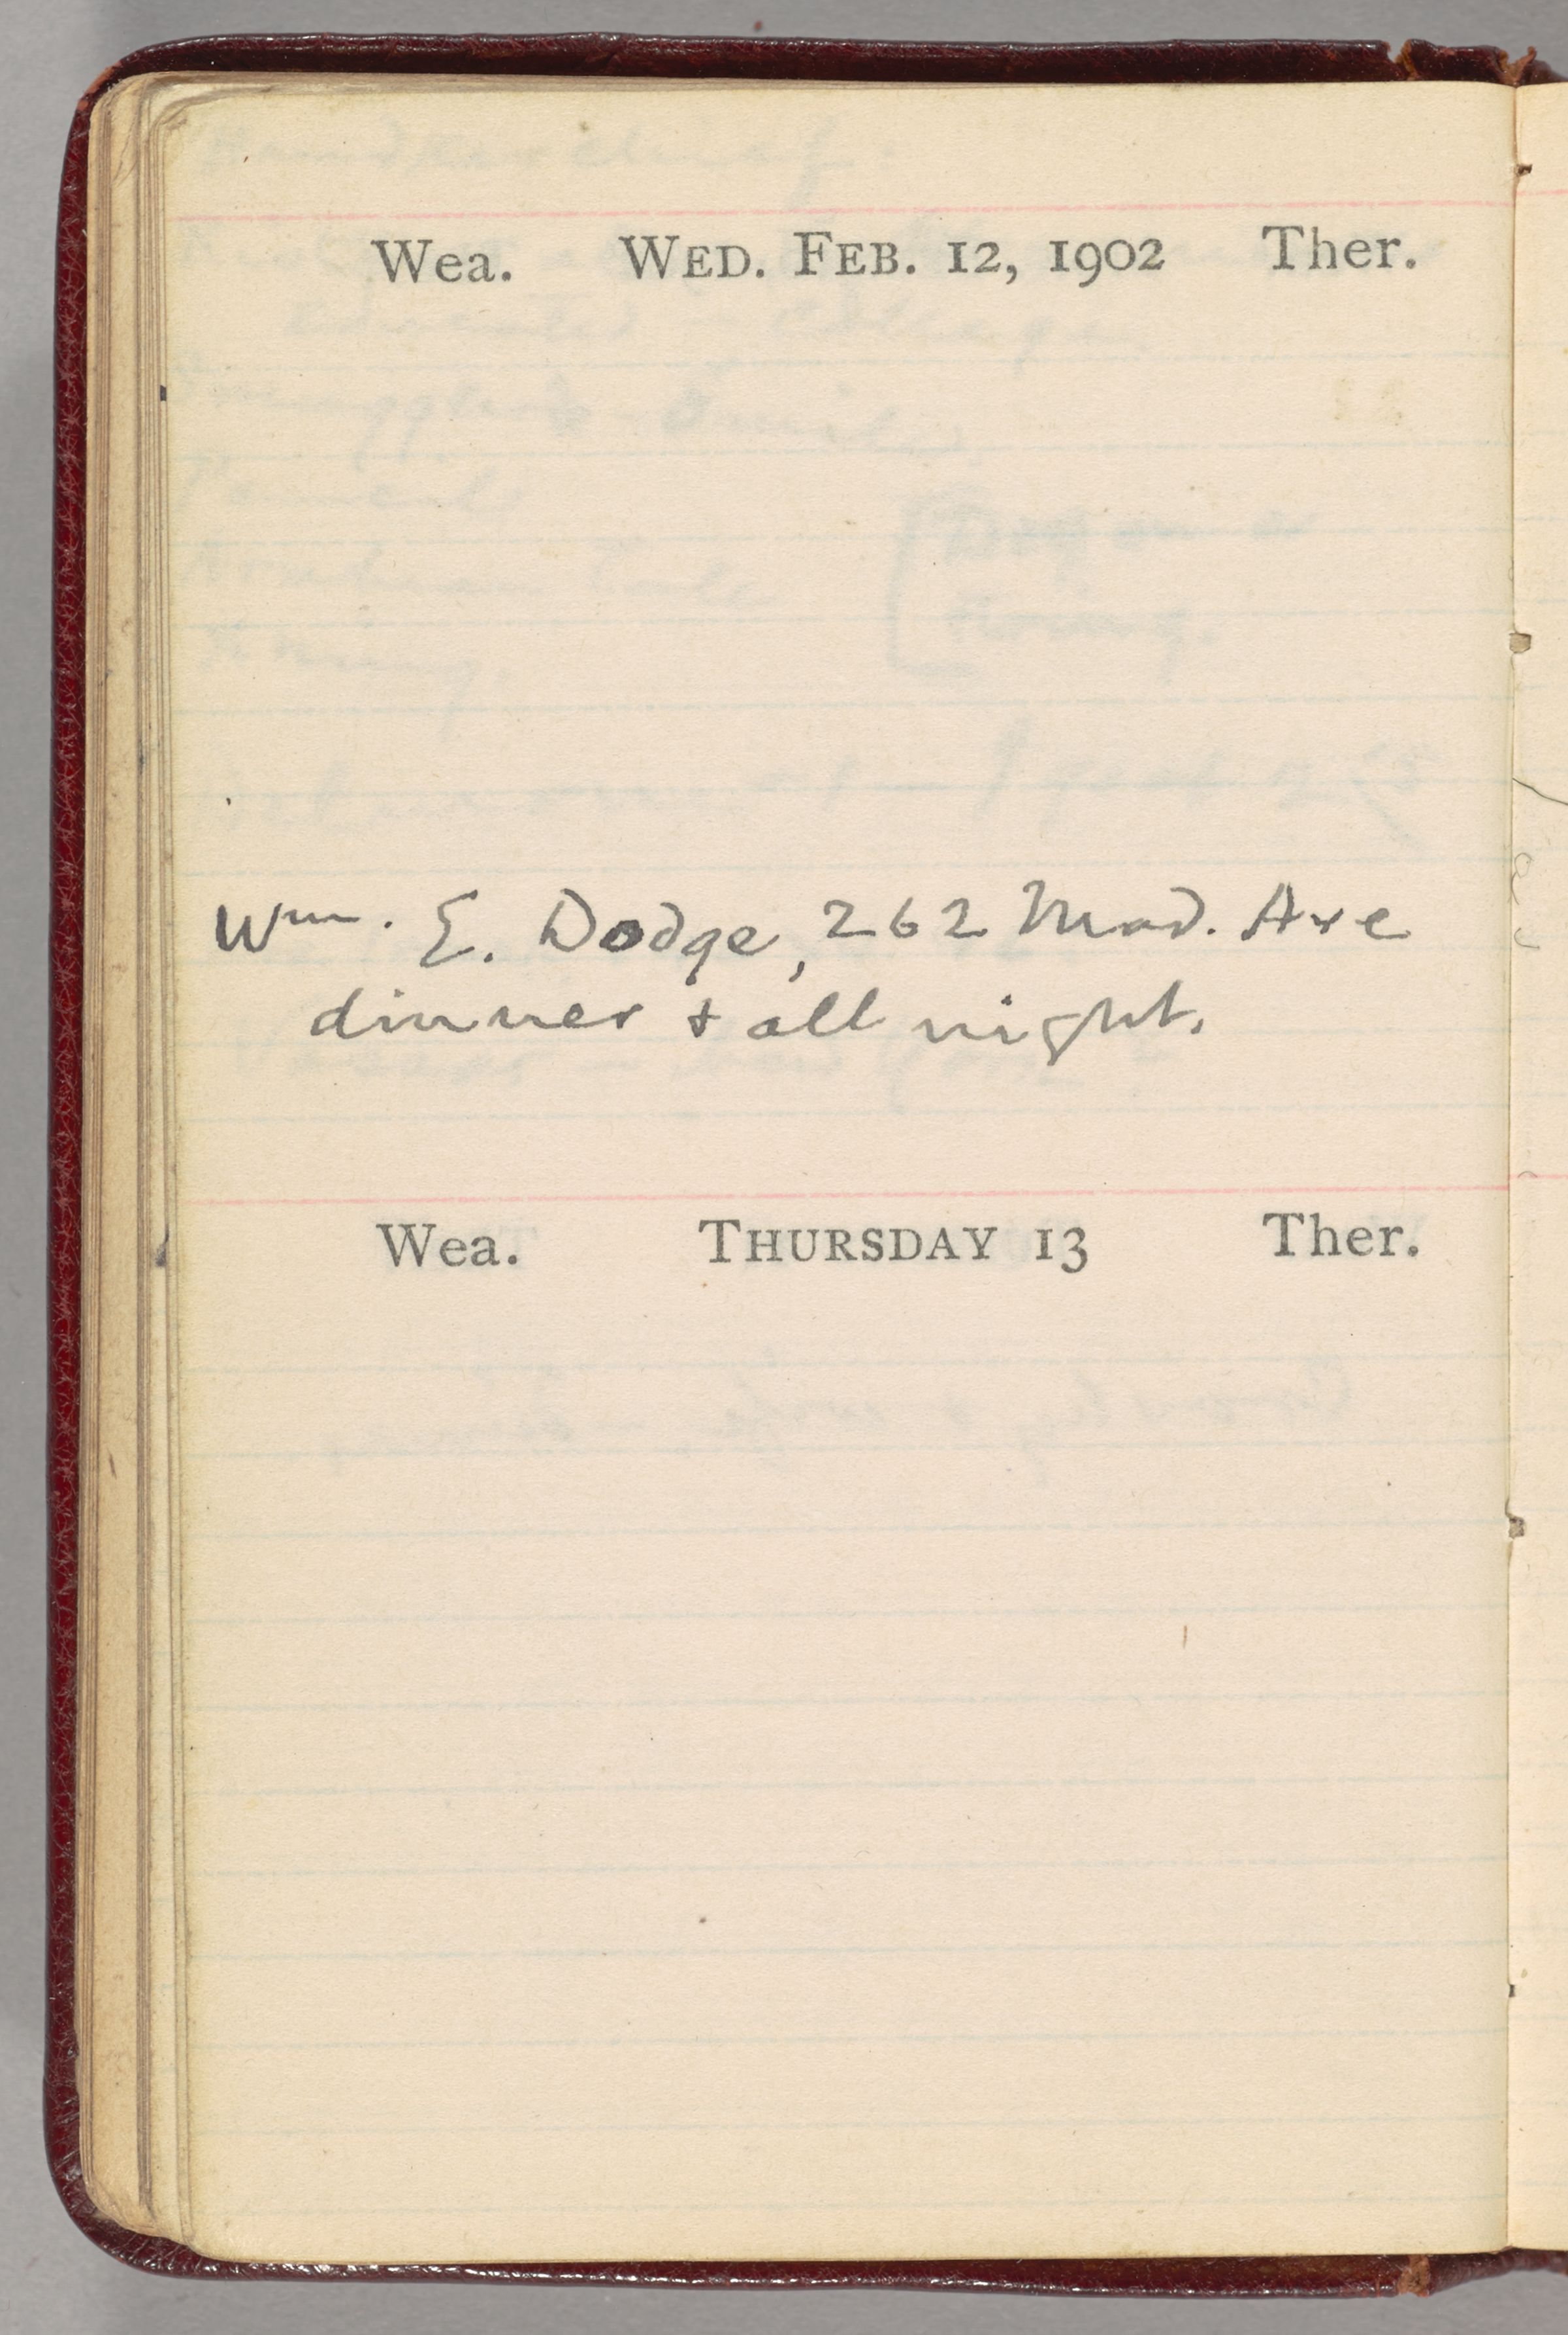 Wea. WED. FEB. 12, 1902 Ther.
Wm. E. Dodge, 262 Mad. Ave
dinner + all night.
Wea. THURSDAY 13 Ther.